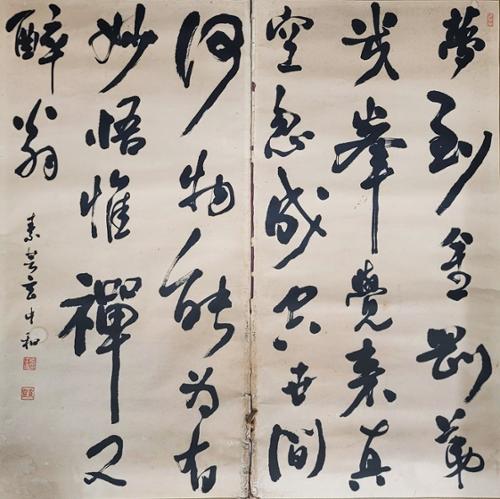 夢到金剛第
幾峯覺來真
空忽成空世間
何物能為有
妙悟惟禪又
醉翁
素菴玄中和